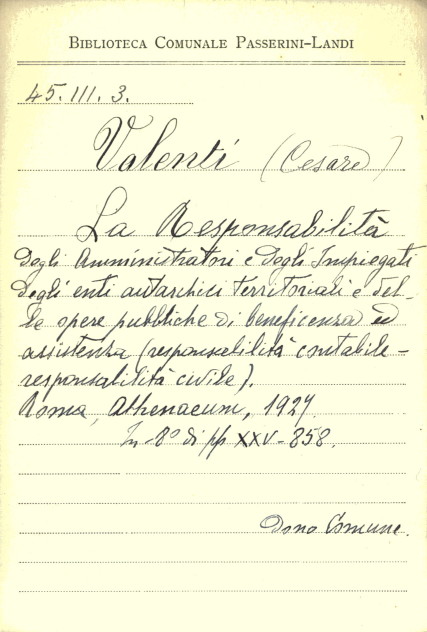 BIBLIOTECA COMUNALE PASSERINI-LANDI
45. III. 3.
Valenti (Cesare)
La Responsabilità
degli Amministratori e degli Impiegati
degli enti autarchici territoriali e del-
le opere pubbliche di beneficenza ed
assistenza (responsabilità contabile -
responsabilità civile).
Roma, Athenaeum, 1927.
In-8° di pp XXV-858.
Dono Comune.